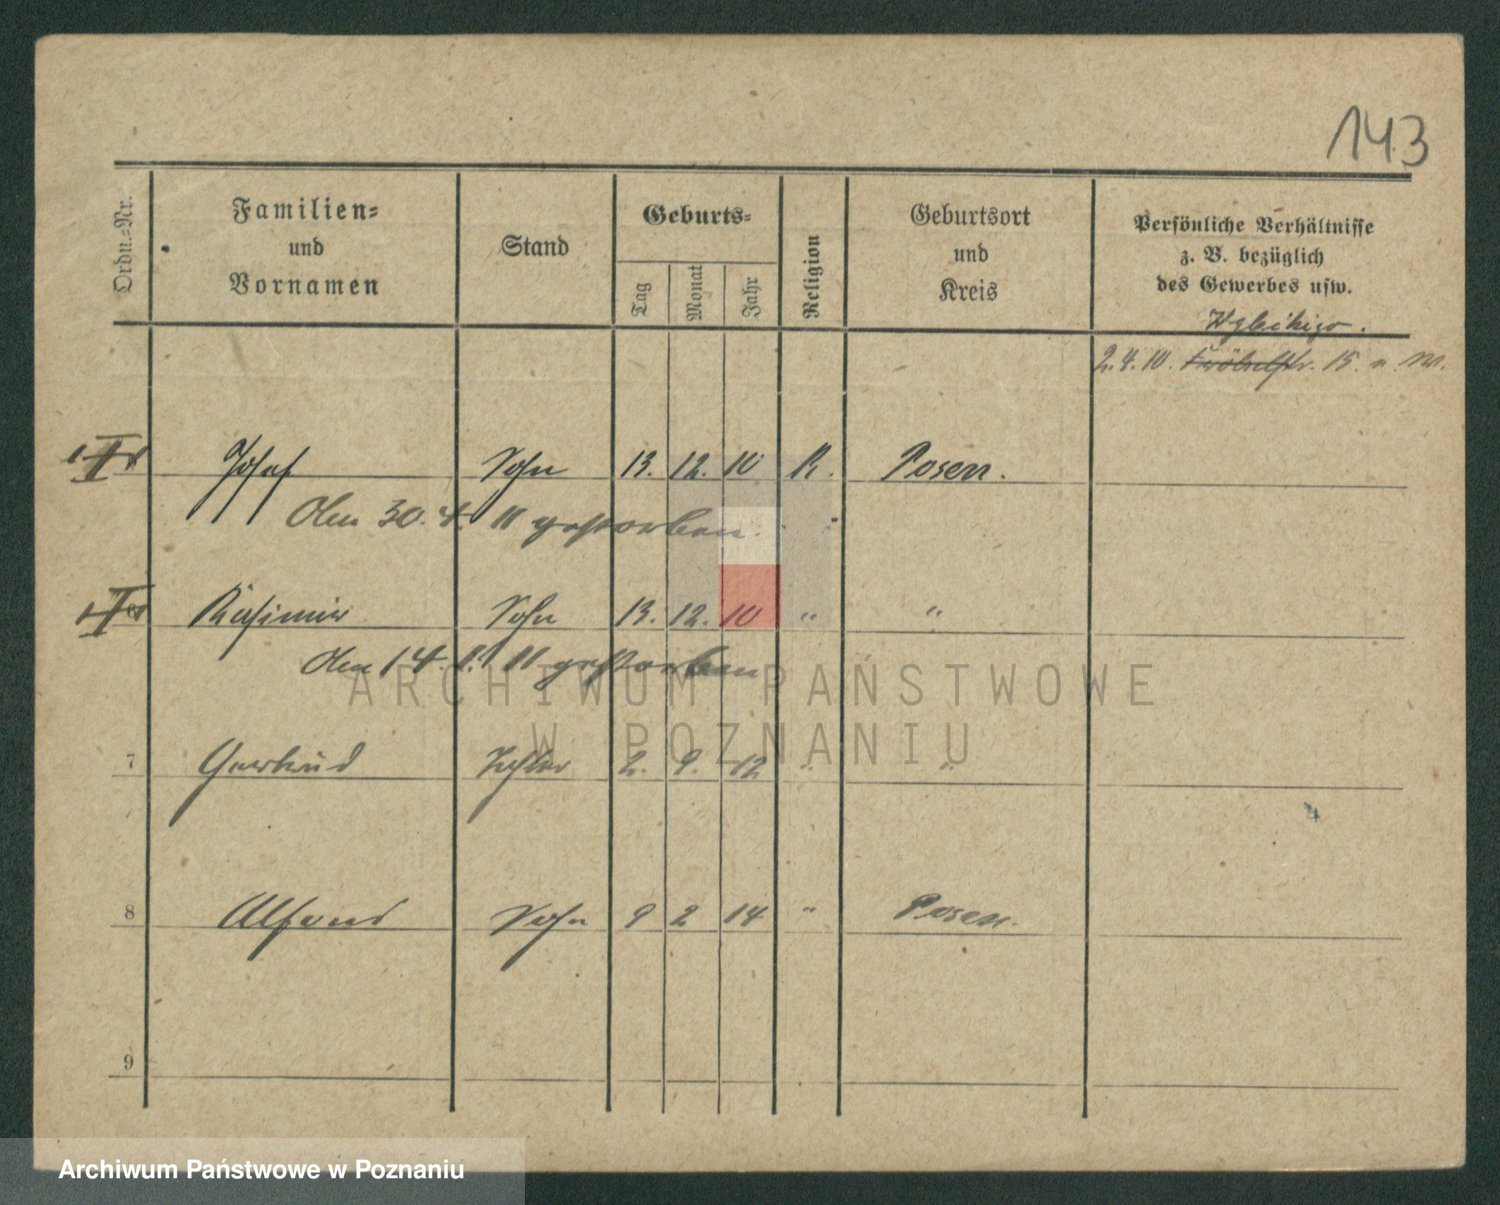 143
Ordn.-Nr.
Familien-
und
Vornamen
Stand
Geburts-
Tag
Monat
Jahr
Religion
Geburtsort
und
Kreis
Persönliche Verhältnisse
z. B. bezüglich
des Gewerbes usw.
2.4.10. Fröbelstr. 15
Josef Sohn 13. 12. 10 K. Posen.
Am 30. 4. 11 gestorben.
Kasimir Sohn 13. 12. 10 " "
Am 14. 11 gestorben
7 Gertrud Tochter 2. 9. 12 " "
8 Alfons Sohn 9 2 14 " Posen.
9
ARCHIWUM PAŃSTWOWE
W POZNANIU
Archiwum Państwowe w Poznaniu